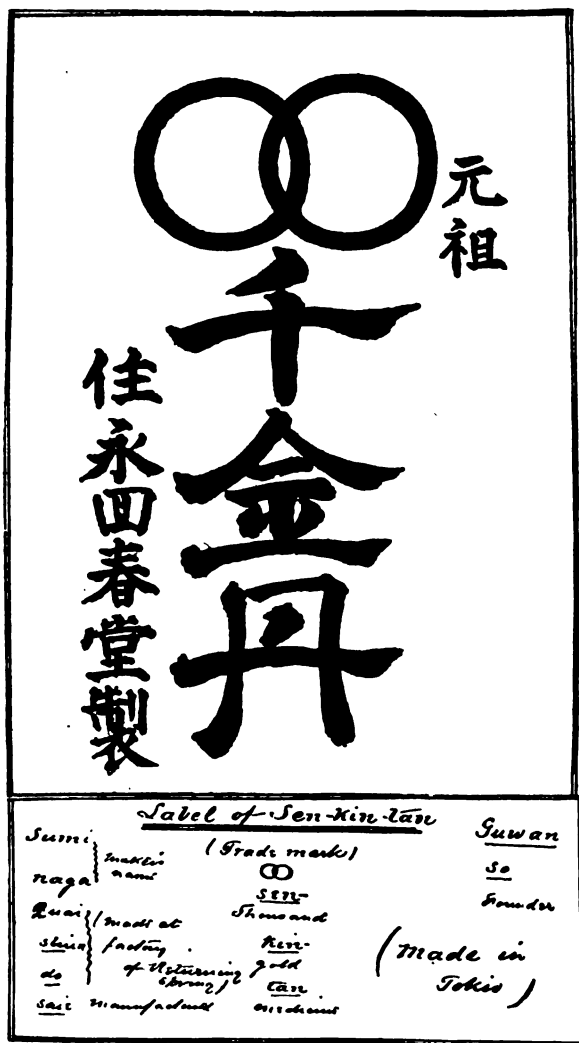 元祖
千金丹
住永回春堂製
Label of Sen-Kin-tan
Sumi
naga
maker's name
Quai
shun
do
saic
(made at
factory
of Returning
Spring)
manufactured
(Trade mark)
sen-
thousand
kin-
gold
tan
medicine
Guwan
so
Founder
(made in
Tokio)